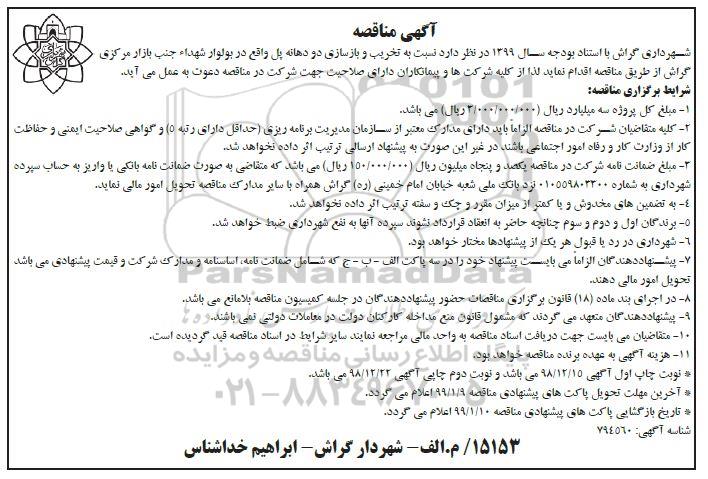 آگهی مناقصه
شهرداری گراش با استناد بودجه سال ۱۳۹۹ در نظر دارد نسبت به تخریب و بازسازی دو دهانه پل واقع در بولوار شهداء جنب بازار مرکزی
گراش از طریق مناقصه اقدام نماید لذا از کلیه شرکت ها و پیمانکاران دارای صلاحیت جهت شرکت در مناقصه دعوت به عمل می آید.
شرایط برگزاری مناقصه:
۱- مبلغ کل پروژه سه میلیارد ریال (۳/۰۰۰/۰۰۰/۰۰۰ ریال) می باشد.
۲- کلیه متقاضیان شرکت در مناقصه الزاماً باید دارای مدارک معتبر از سازمان مدیریت برنامه ریزی (حداقل دارای رتبه ۵) و گواهی صلاحیت ایمنی و حفاظت
کار از وزارت کار و رفاه امور اجتماعی باشند در غیر این صورت به پیشنهاد ارسالی ترتیب اثر داده نخواهد شد.
۳- مبلغ ضمانت نامه شرکت در مناقصه یکصد و پنجاه میلیون ریال (۱۵۰/۰۰۰/۰۰۰ ریال) می باشد که متقاضی به صورت ضمانت نامه بانکی یا واریز به حساب سپرده
شهرداری به شماره ۰۱۰۵۵۹۸۰۲۳۰۰ نزد بانک ملی شعبه خیابان امام خمینی (ره) گراش همراه با سایر مدارک مناقصه تحویل امور مالی نماید.
۴- به تضمین های مخدوش و یا کمتر از میزان مقرر و چک و سفته ترتیب اثر داده نخواهد شد.
۵- برندگان اول و دوم و سوم چنانچه حاضر به انعقاد قرارداد نشوند سپرده آنها به نفع شهرداری ضبط خواهد شد.
۶- شهرداری در رد یا قبول هر یک از پیشنهادها مختار خواهد بود.
۷- پیشنهاددهندگان الزاماً می بایست پیشنهاد خود را در سه پاکت الف - ب - ج که شامل ضمانت نامه، اساسنامه و مدارک شرکت و قیمت پیشنهادی می باشد
تحویل امور مالی دهند.
۸- در اجرای بند ماده (۱۸) قانون برگزاری مناقصات حضور پیشنهاددهندگان در جلسه کمیسیون مناقصه بلامانع می باشد.
۹- پیشنهاددهندگان متعهد می گردند که مشمول قانون منع مداخله کارکنان دولت در معاملات دولتی نمی باشند.
۱۰- متقاضیان می بایست جهت دریافت اسناد مناقصه به واحد مالی مراجعه نمایند سایر شرایط در اسناد مناقصه قید گردیده است.
۱۱- هزینه آگهی به عهده برنده مناقصه خواهد بود.
* نوبت چاپ اول آگهی ۹۸/۱۲/۱۵ می باشد و نوبت دوم چاپی آگهی ۹۸/۱۲/۲۲ می باشد.
* آخرین مهلت تحویل پاکت های پیشنهادی مناقصه ۹۹/۱/۹ اعلام می گردد.
* تاریخ بازگشایی پاکت های پیشنهادی مناقصه ۹۹/۱/۱۰ اعلام می گردد.
شناسه آگهی: ۷۹۴۵۶۰
۱۵۱۵۳/ م.الف- شهردار گراش- ابراهیم خداشناس
ParsNamadData
پایگاه اطلاع رسانی مناقصه و مزایده
۰۲۱-۸۸۳۴۹۶۷۰-۵